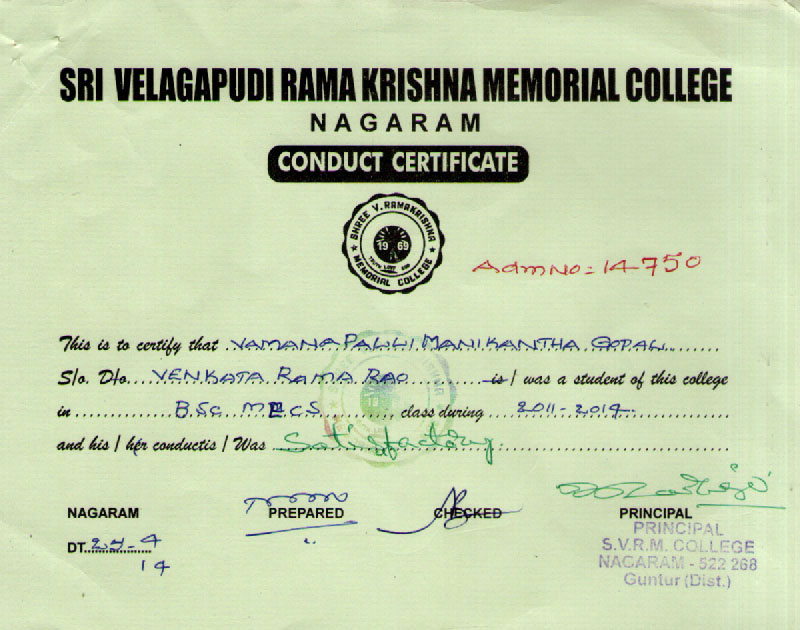 SRI VELAGAPUDI RAMA KRISHNA MEMORIAL COLLEGE
NAGARAM
CONDUCT CERTIFICATE
SHREE V. RAMAKRISHNA
1969
MEMORIAL COLLEGE
Adm No: 14-750
This is to certify that VAMANA PALLI MANIKANTHA GOPAL
S/o. D/o. VENKATA RAMA RAO is / was a student of this college
in B.Sc. MECS class during 2011-2014
and his / her conductis / Was Satisfactory
NAGARAM PREPARED CHECKED PRINCIPAL
DT. -4
14
PRINCIPAL
S.V.R.M. COLLEGE
NAGARAM - 522 268
Guntur (Dist.)